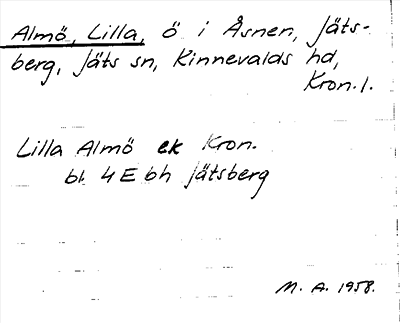 Almö, Lilla, ö i Åsnen, Jäts-
berg, Jäts sn, Kinnevalds hd,
Kron. l.
Lilla Almö ek Kron.
bl. 4 E bh Jätsberg
M. A. 1958.